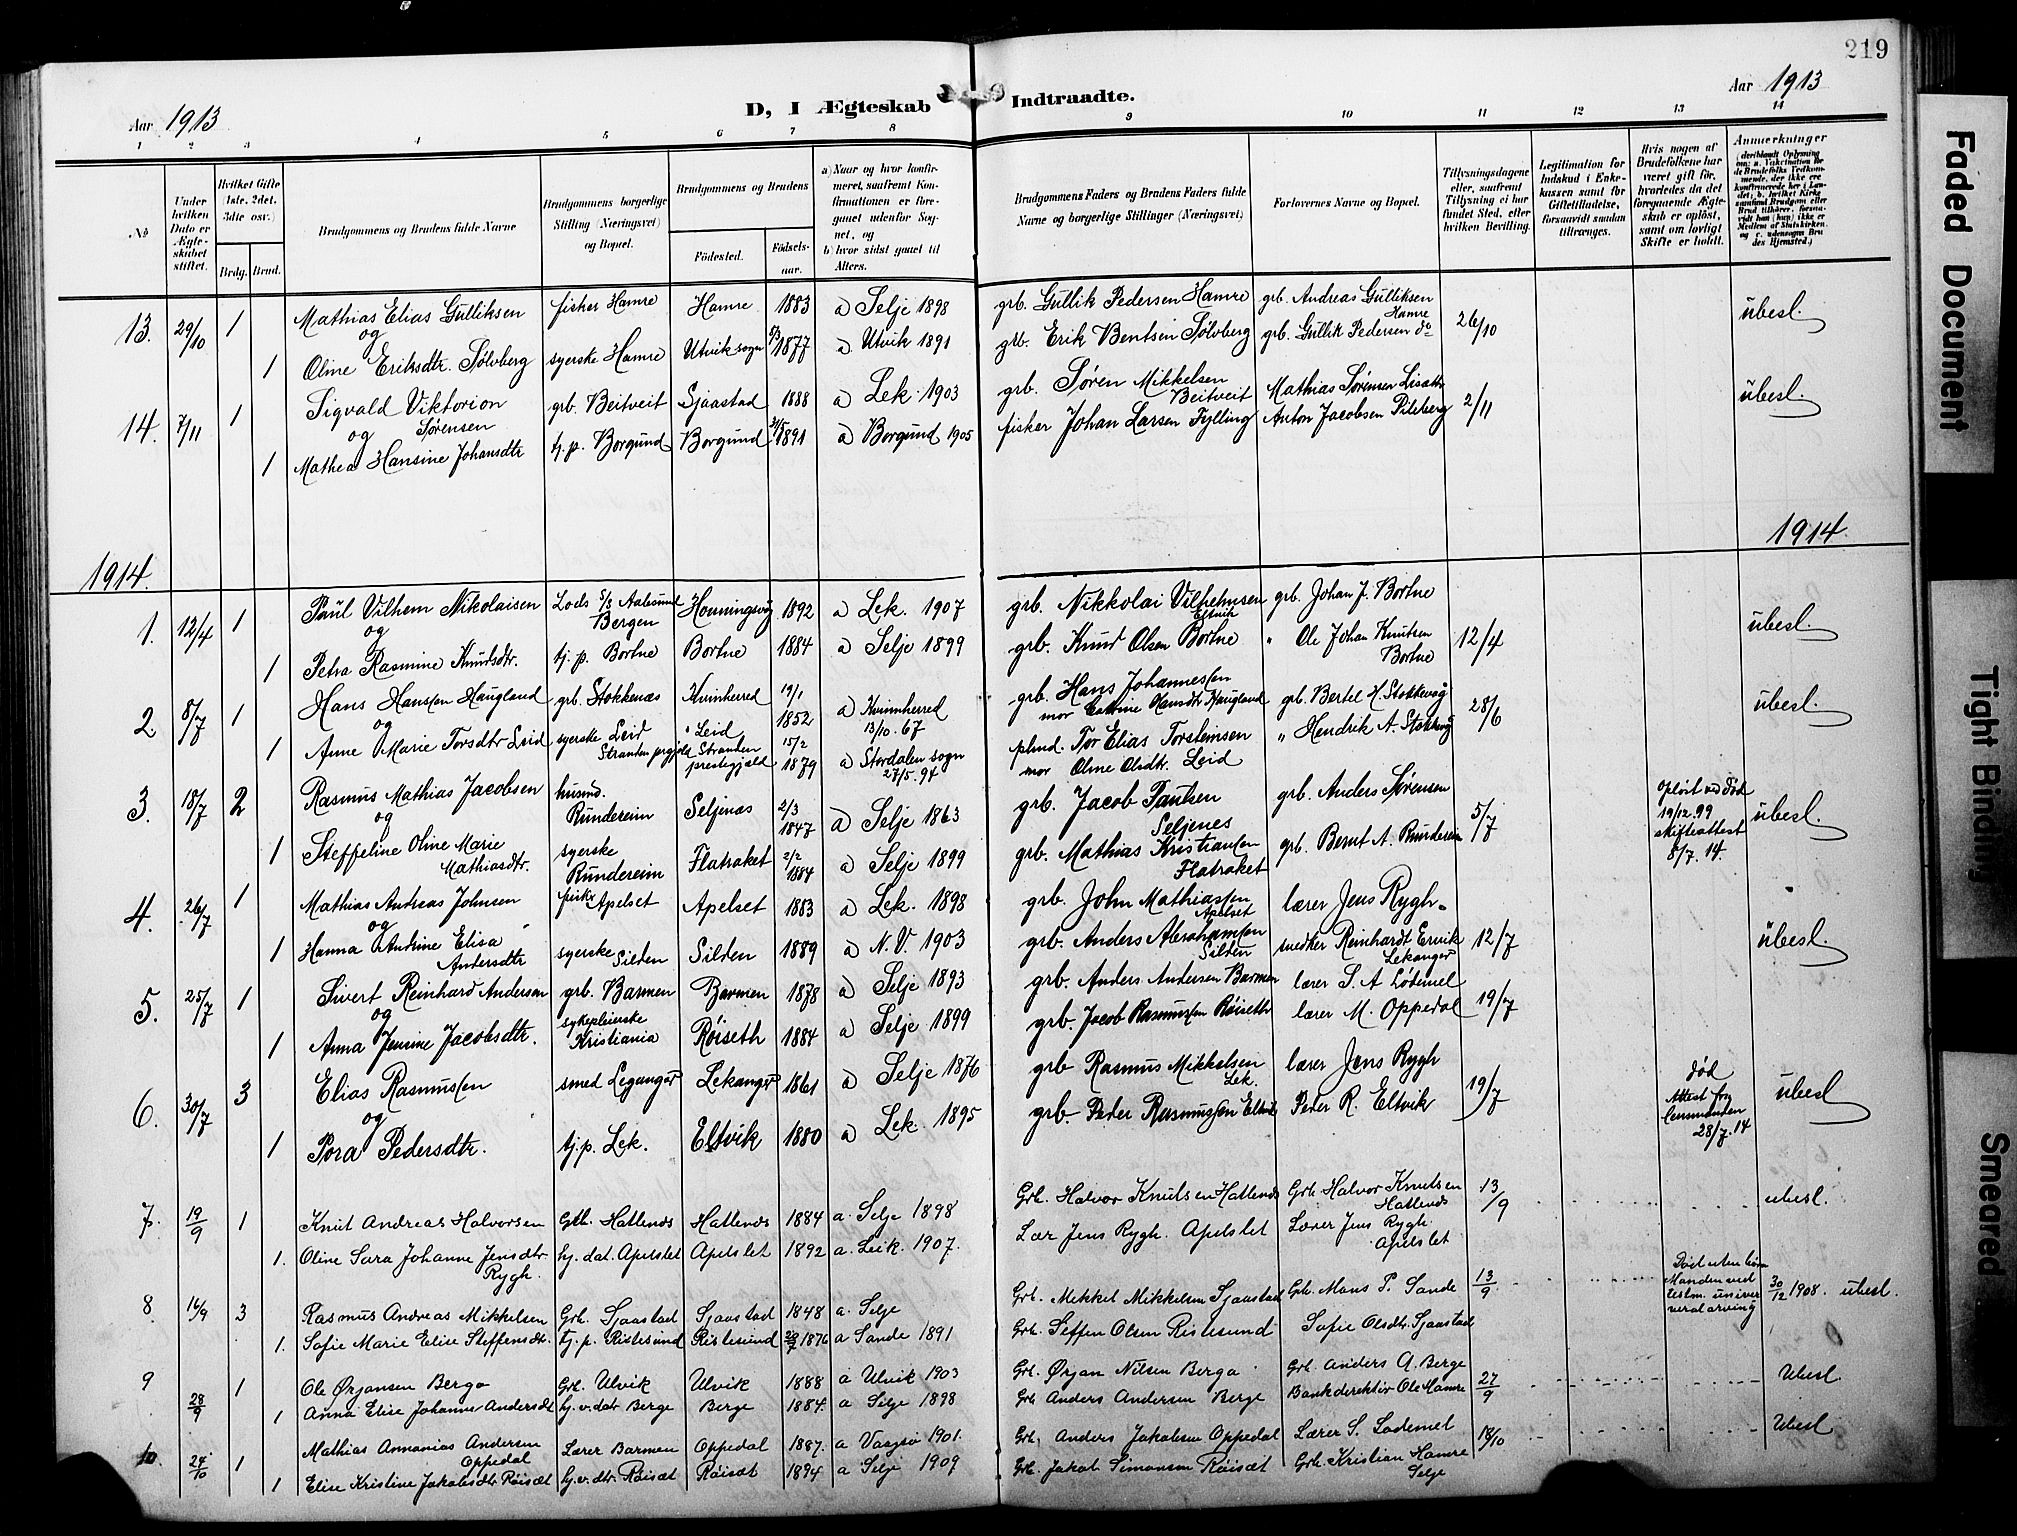 219
Aar 1913
D, I Ægteskab Indtraadte.
Aar 1913
1 2 3 4 5 6 7 8 9 10 11 12 13 14
No
Under hvilken Dato er Ægteskabet stiftet.
Hvilket Gifte (1ste, 2det, 3die osv.)
Brdg. Brud.
Brudgommens og Brudens fulde Navne
Brudgommens borgerlige Stilling (Næringsvei) og Bopæl.
Brudgommens og Brudens
Fødested.
Fødselsaar.
a) Naar og hvor konfirmeret, saafremt Konfirmationen er foregaaet udenfor Sognet, og
b) hvor sidst gaaet til Alters.
Brudgommens Faders og Brudens Faders fulde Navne og borgerlige Stillinger (Næringsvei)
Forlovernes Navne og Bopæl.
Tillysningsdagene eller, saafremt Tillysning ei har fundet Sted, efter hvilken Bevilling.
Legitimation for Indskud i Enkekassen samt for Giftetilladelse, forsaavidt saadan tiltrænges.
Hvis nogen af Brudefolkene har været gift før, hvorledes da det foregaaende Ægteskab er opløst, samt om lovligt Skifte er holdt.
Anmerkninger
13. 29/10 1 Mathias Elias Gulliksen fisker Hamre Hamre 1883 a) Selje 1898 grb. Gullik Pedersen Hamre grb. Andreas Gulliksen Hamre 26/10 ubesl.
og
1 Oline Eriksdtr. Sølvberg syerske Hamre Utvik sogn 1877 a) Utvik 1891 grb. Erik Bentsen Sølvberg grb. Gullik Pedersen do
14. 7/11 1 Sigvald Viktorion Sørensen grb. Beitveit Sjaastad 1888 a) Lek. 1903 grb. Søren Mikkelsen Beitveit Mathias Sørensen 2/11 ubesl.
og
1 Mathea Hansine Johansdtr tj. p. Borgund Borgund 1891 a) Borgund 1905 fisker Johan Larsen Fylling Anton Jacobsen
1914. 1914.
1. 12/4 1 Paul Vilhem Nikolaisen Lods S/S Aalesund Bergen Honningsvåg 1892 a) Lek. 1907 grb. Nikkolai Vilhelmsen Eltvik grb. Johan J. Bortne 12/4 ubesl.
og
1 Petra Rasmine Knudsdtr. tj. p. Bortne Bortne 1884 a) Selje 1899 grb. Knud Olsen Bortne " Ole Johan Knutsen Bortne
2. 8/7 1 Hans Hanssen Haugland grb. Stokkenæs Kvinherred 19/1 1852 a) Kvinnherred 13/10. 67 grb. Hans Johannessen mor Hansdtr Haugland grb. Bertel H. Stokkevåg 28/6 ubesl.
og
1 Anne Marie Torsdtr Leid syerske Leid Stranden prgjeld Leid Stranden prestegjæld 15/2 1879 a) Stordalen sogn 27/5. 94 plmd. Tor Elias Torsteinsen mor Oline Olsdtr. Leid " Hendrik A. Stokkevåg
3. 18/7 2 Rasmus Mathias Jacobsen husmd. Rundereim Seljenæs 2/3 1847 a) Selje 1863 grb. Jacob Paulsen Seljenes grb. Anders Sørensen 5/7 Opløst ved Død 19/12.99 skifteattest 8/7. 14. ubesl.
og
1 Steffeline Oline Marie Mathiasdtr. syerske Rundereim Flatraket 2/2 1884 a) Selje 1899 grb. Mathias Kristiansen Flatraket grb. Bernt A. Rundereim
4. 26/7 1 Mathias Andreas Johnsen fisker Apelset Apelset 1883 a) Lek. 1898 grb. John Mathiassen Apelset lærer Jens Rygh. 12/7 ubesl.
og
1 Hanna Andrine Elisa Andersdtr syerske Silden Silden 1889 a) N. V. 1903 grb. Anders Abrahamsen Silden snedker Reinhardt Ervik Lekanger
5. 25/7 1 Sivert Reinhard Andersen grb. Barmen Barmen 1878 a) Selje 1893 grb. Anders Andersen Barmen lærer S. A. Lødemel 19/7
og
1 Anna Jensine Jacobsdtr. sykepleierske Kristiania Røiseth 1884 a) Selje 1899 grb. Jacob Rasmussen Røiseth lærer M. Oppedal
6. 30/7 3 Elias Rasmussen smed Leganger Lekanger 1861 a) Selje 1876 grb Rasmus Mikkelsen Lek. lærer Jens Rygh 19/7 død Attest fra Lensmanden 28/7. 14 ubesl
og
1 Pora Pedersdtr. tj. p. Lek. Eltvik 1880 a) Lek. 1895 grb. Peder Rasmussen Eltvik Peder R. Eltvik
7. 19/9 1 Knut Andreas Halvorsen Grb. Hatlenes Hatlenes 1884 a. Selje 1898 Grb. Halvor Knutsen Hatlenes Grb. Halvor Knutsen Hatlenes 13/9 ubesl.
1. Oline Sara Johanne Jensdtr. Rygh. hj. dat. Apelslet Apelslet 1892 a. Leik. 1907. Lær Jens Rygh. Apelslet Lærer Jens Rygh. Apelslet
8 16/9 3 Rasmus Andreas Mikkelsen Grb. Sjaastad Sjaastad 1848 a. Selje Grb. Mikkel Mikkelsen Sjaastad Grb. Mons P. Sande 13/9 Død uten børn Manden ved testm. uniververal arving 30/12 1908. ubesl.
1. Sofie Marie Elise Steffensdtr. tj. p. Ristesund Ristesund 1876 a Sande 1891 Grb. Steffen Olsen Ristesund Sofie Olsdtr. Sjaastad
9 28/9 1 Ole Ørjansen Berge Grb. Ulvik Ulvik 1888 a Ulvik 1903 Grb. Ørjan Nilsen Berge Grb. Anders A. Berge 27/9 Ubesl.
1 Anna Elise Johanne Andersdt hj. v. dtr Berge Berge 1884. a Selje 1898 Grb Anders Andersen Berge Bankdirektør Ole Hamre
10. 24/10 1 Mathias Annanias Andersen Oppedal Lærer Barmen Oppedal 1887. a Vaagsø 1901. Grb. Anders Jakobsen Oppedal Lærer S. Lødemel 18/10 Ubesl
1 Elise Kristine Jakobsdtr Røisæt hj. v. dtr. Røisæt Røisæt 1894 a Selje 1909 Grb. Jakob Simonsen Røisæt Grb. Kristian Hamre Selje
Faded Document
Tight Binding
Smeared